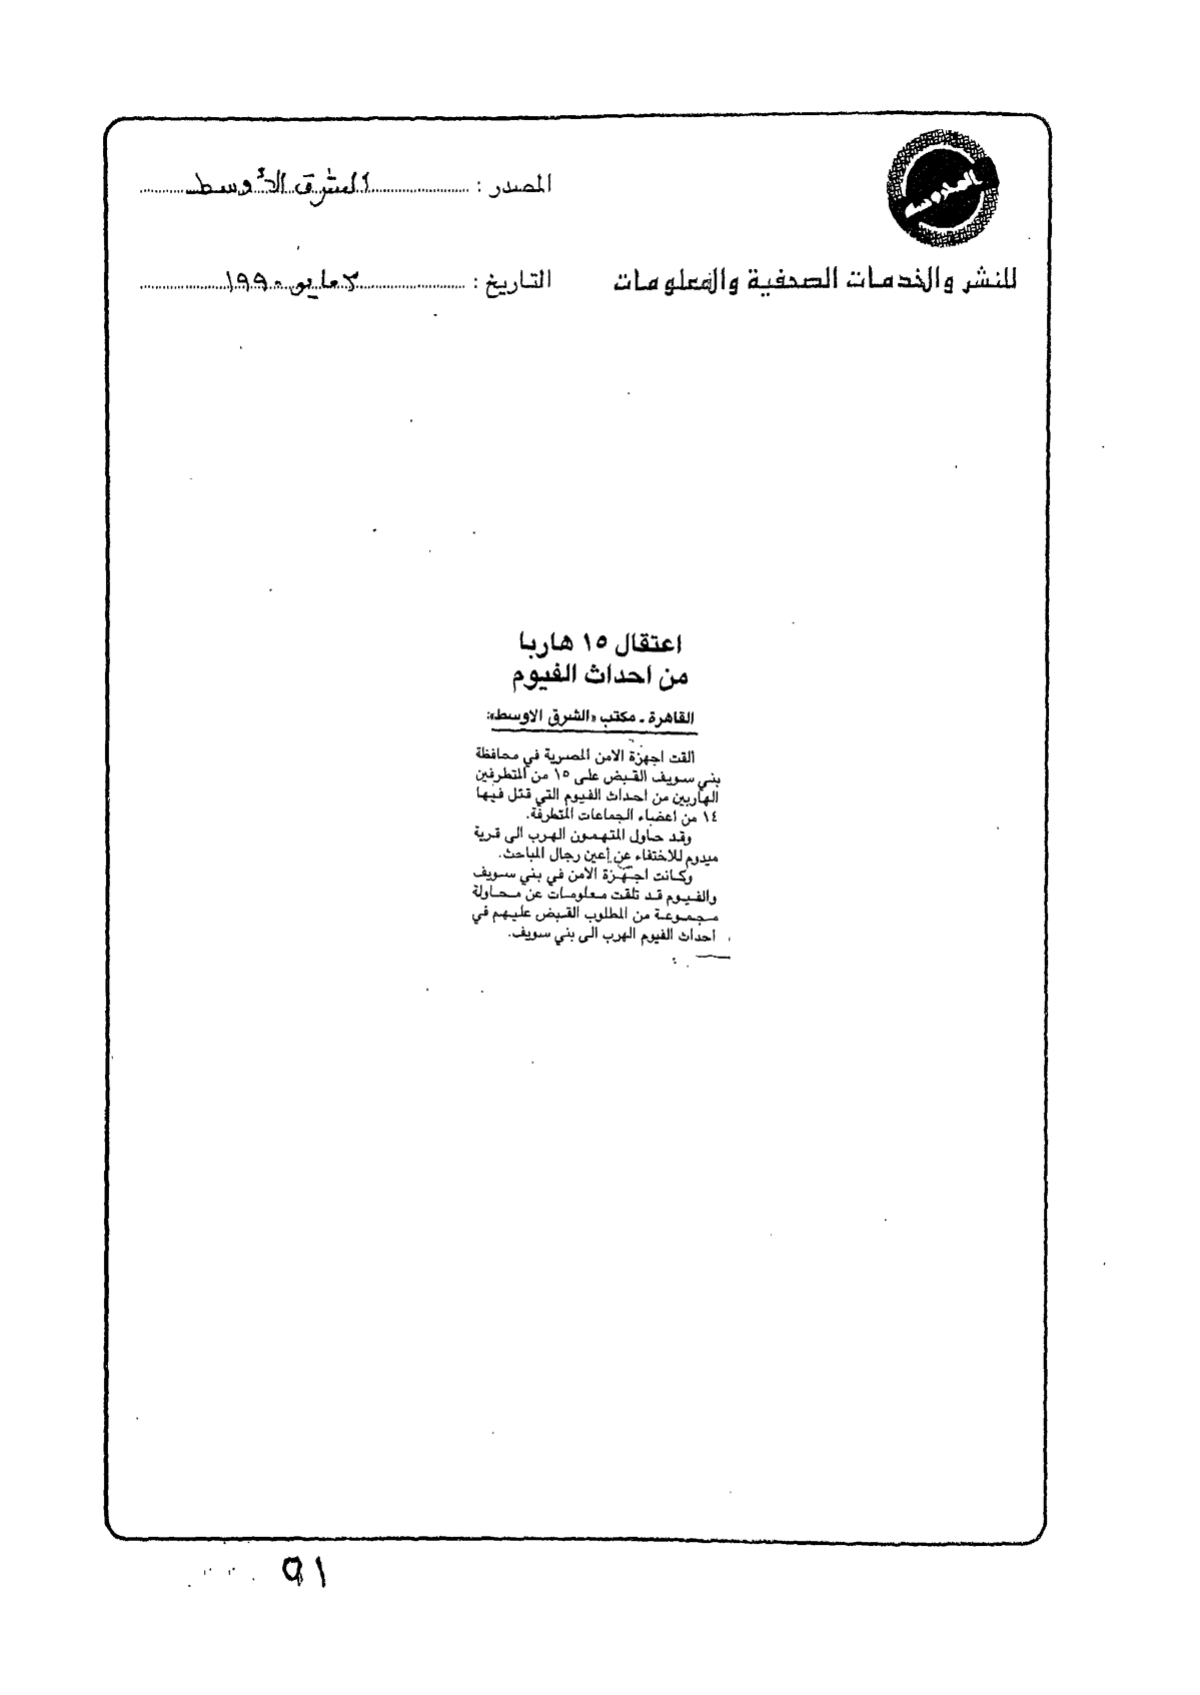 المصدر : الشرق الأوسط
للنشر والخدمات الصحفية والمعلومات
التاريخ : ٢ مايو ١٩٩٠
اعتقال ١٥ هاربا
من احداث الفيوم
القاهرة ـ مكتب «الشرق الاوسط»:
القت اجهزة الامن المصرية في محافظة
بني سويف القبض على ١٥ من المتطرفين
الهاربين من احداث الفيوم التي قتل فيها
١٤ من اعضاء الجماعات المتطرفة.
وقد حاول المتهمون الهرب الى قرية
ميدوم للاختفاء عن أعين رجال المباحث.
وكانت اجهزة الامن في بني سويف
والفيوم قد تلقت معلومات عن محاولة
مجموعة من المطلوب القبض عليهم في
احداث الفيوم الهرب الى بني سويف.
٩١